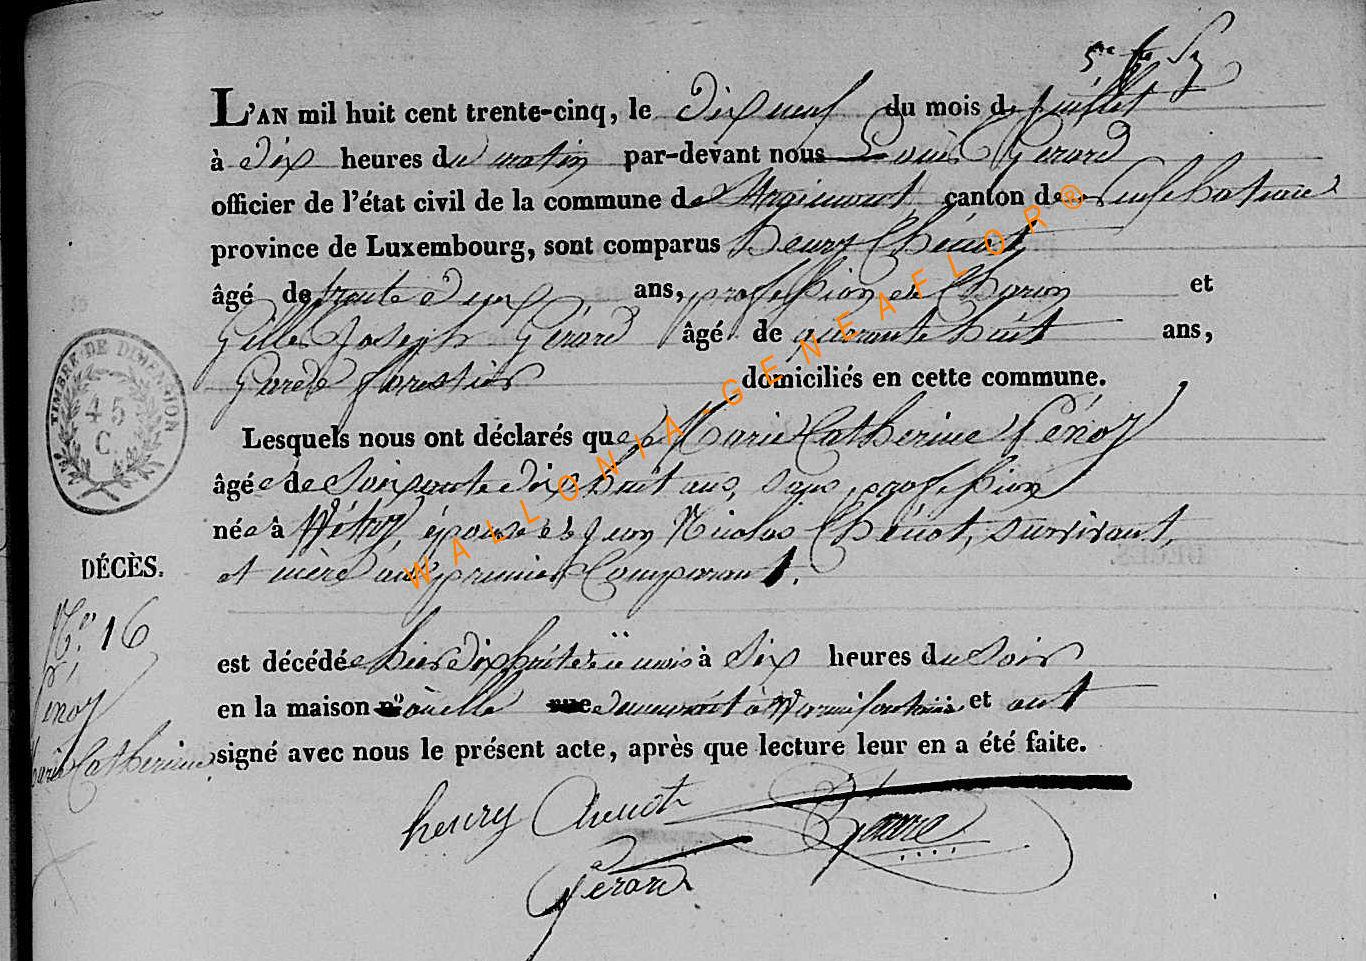 5me fet
L'AN mil huit cent trente-cinq, le dix neuf du mois de Juillet
à dix heures du matin par-devant nous Louis Gerard
officier de l'état civil de la commune de canton de Neufchateau
province de Luxembourg, sont comparus henry Chénot
âgé de trente deux ans, profession de Charon et
Gille Joseph Gérard âgé de quarante huit ans,
Garde forestier domiciliés en cette commune.
Lesquels nous ont déclarés que Marie Catherine Pénoy
âgée de Soixante dix huit ans, sans profession
née à épouse de Jean Nicolas Chénot, survivant,
et mère du premier Comparant.
est décédée hier dix huit de ce mois à Six heures du Soir
en la maison n° où elle rue demeurait à Warmifontaine et ont
signé avec nous le présent acte, après que lecture leur en a été faite.
henry Chenot
Gérard
TIMBRE DE DIMENSION
45
C.
DÉCÈS.
N.° 16
Pénoy
Marie Catherine
WALLONIA-GENEAFLOR®